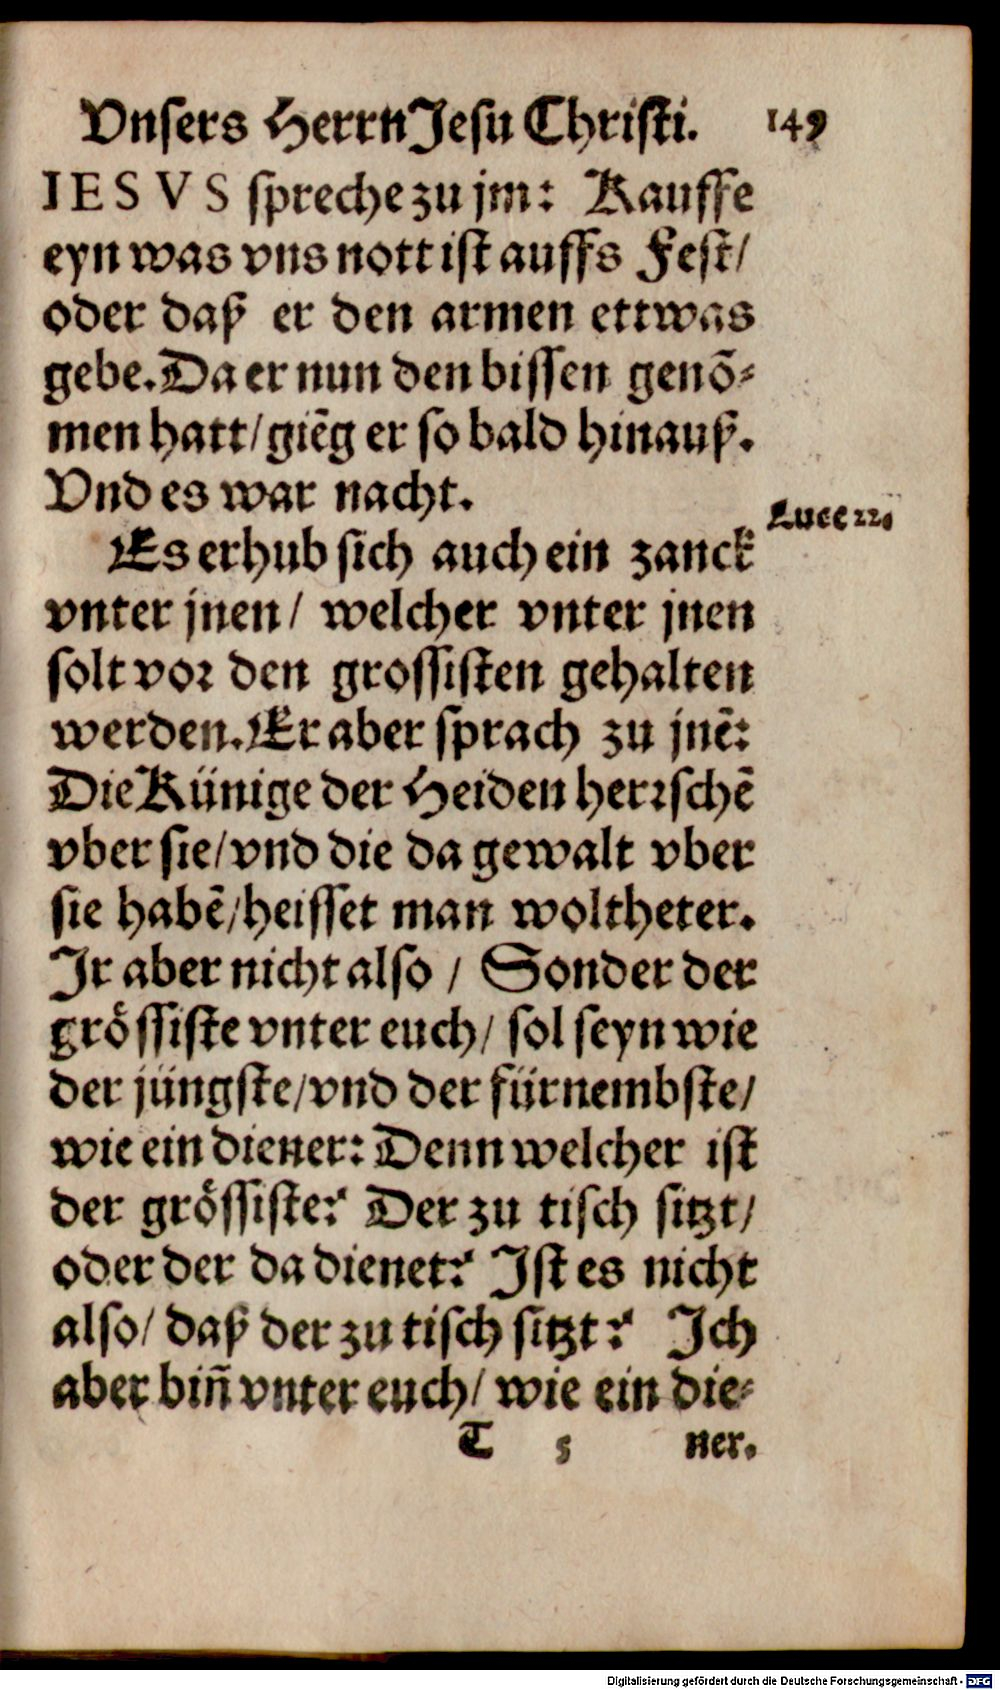 Vnsers Herrn Jesu Christi. 149
IESVS spreche zu jm: Kauffe
eyn was vns nott ist auffs Fest/
oder daß er den armen ettwas
gebe. Da er nun den bissen genõ⸗
men hatt/ giẽg er so bald hinauß.
Vnd es war nacht.
Luce 22.
Es erhub sich auch ein zanck
vnter jnen/ welcher vnter jnen
solt vor den grossisten gehalten
werden. Er aber sprach zu jnẽ:
Die Künige der Heiden herrschẽ
vber sie/ vnd die da gewalt vber
sie habẽ/ heisset man woltheter.
Jr aber nicht also / Sonder der
grössiste vnter euch/ sol seyn wie
der jüngste/ vnd der fürnembste/
wie ein diener: Denn welcher ist
der grössiste? Der zu tisch sitzt/
oder der da dienet? Jst es nicht
also/ daß der zu tisch sitzt? Jch
aber biñ vnter euch/ wie ein die⸗
T 5 ner.
Digitalisierung gefördert durch die Deutsche Forschungsgemeinschaft - DFG